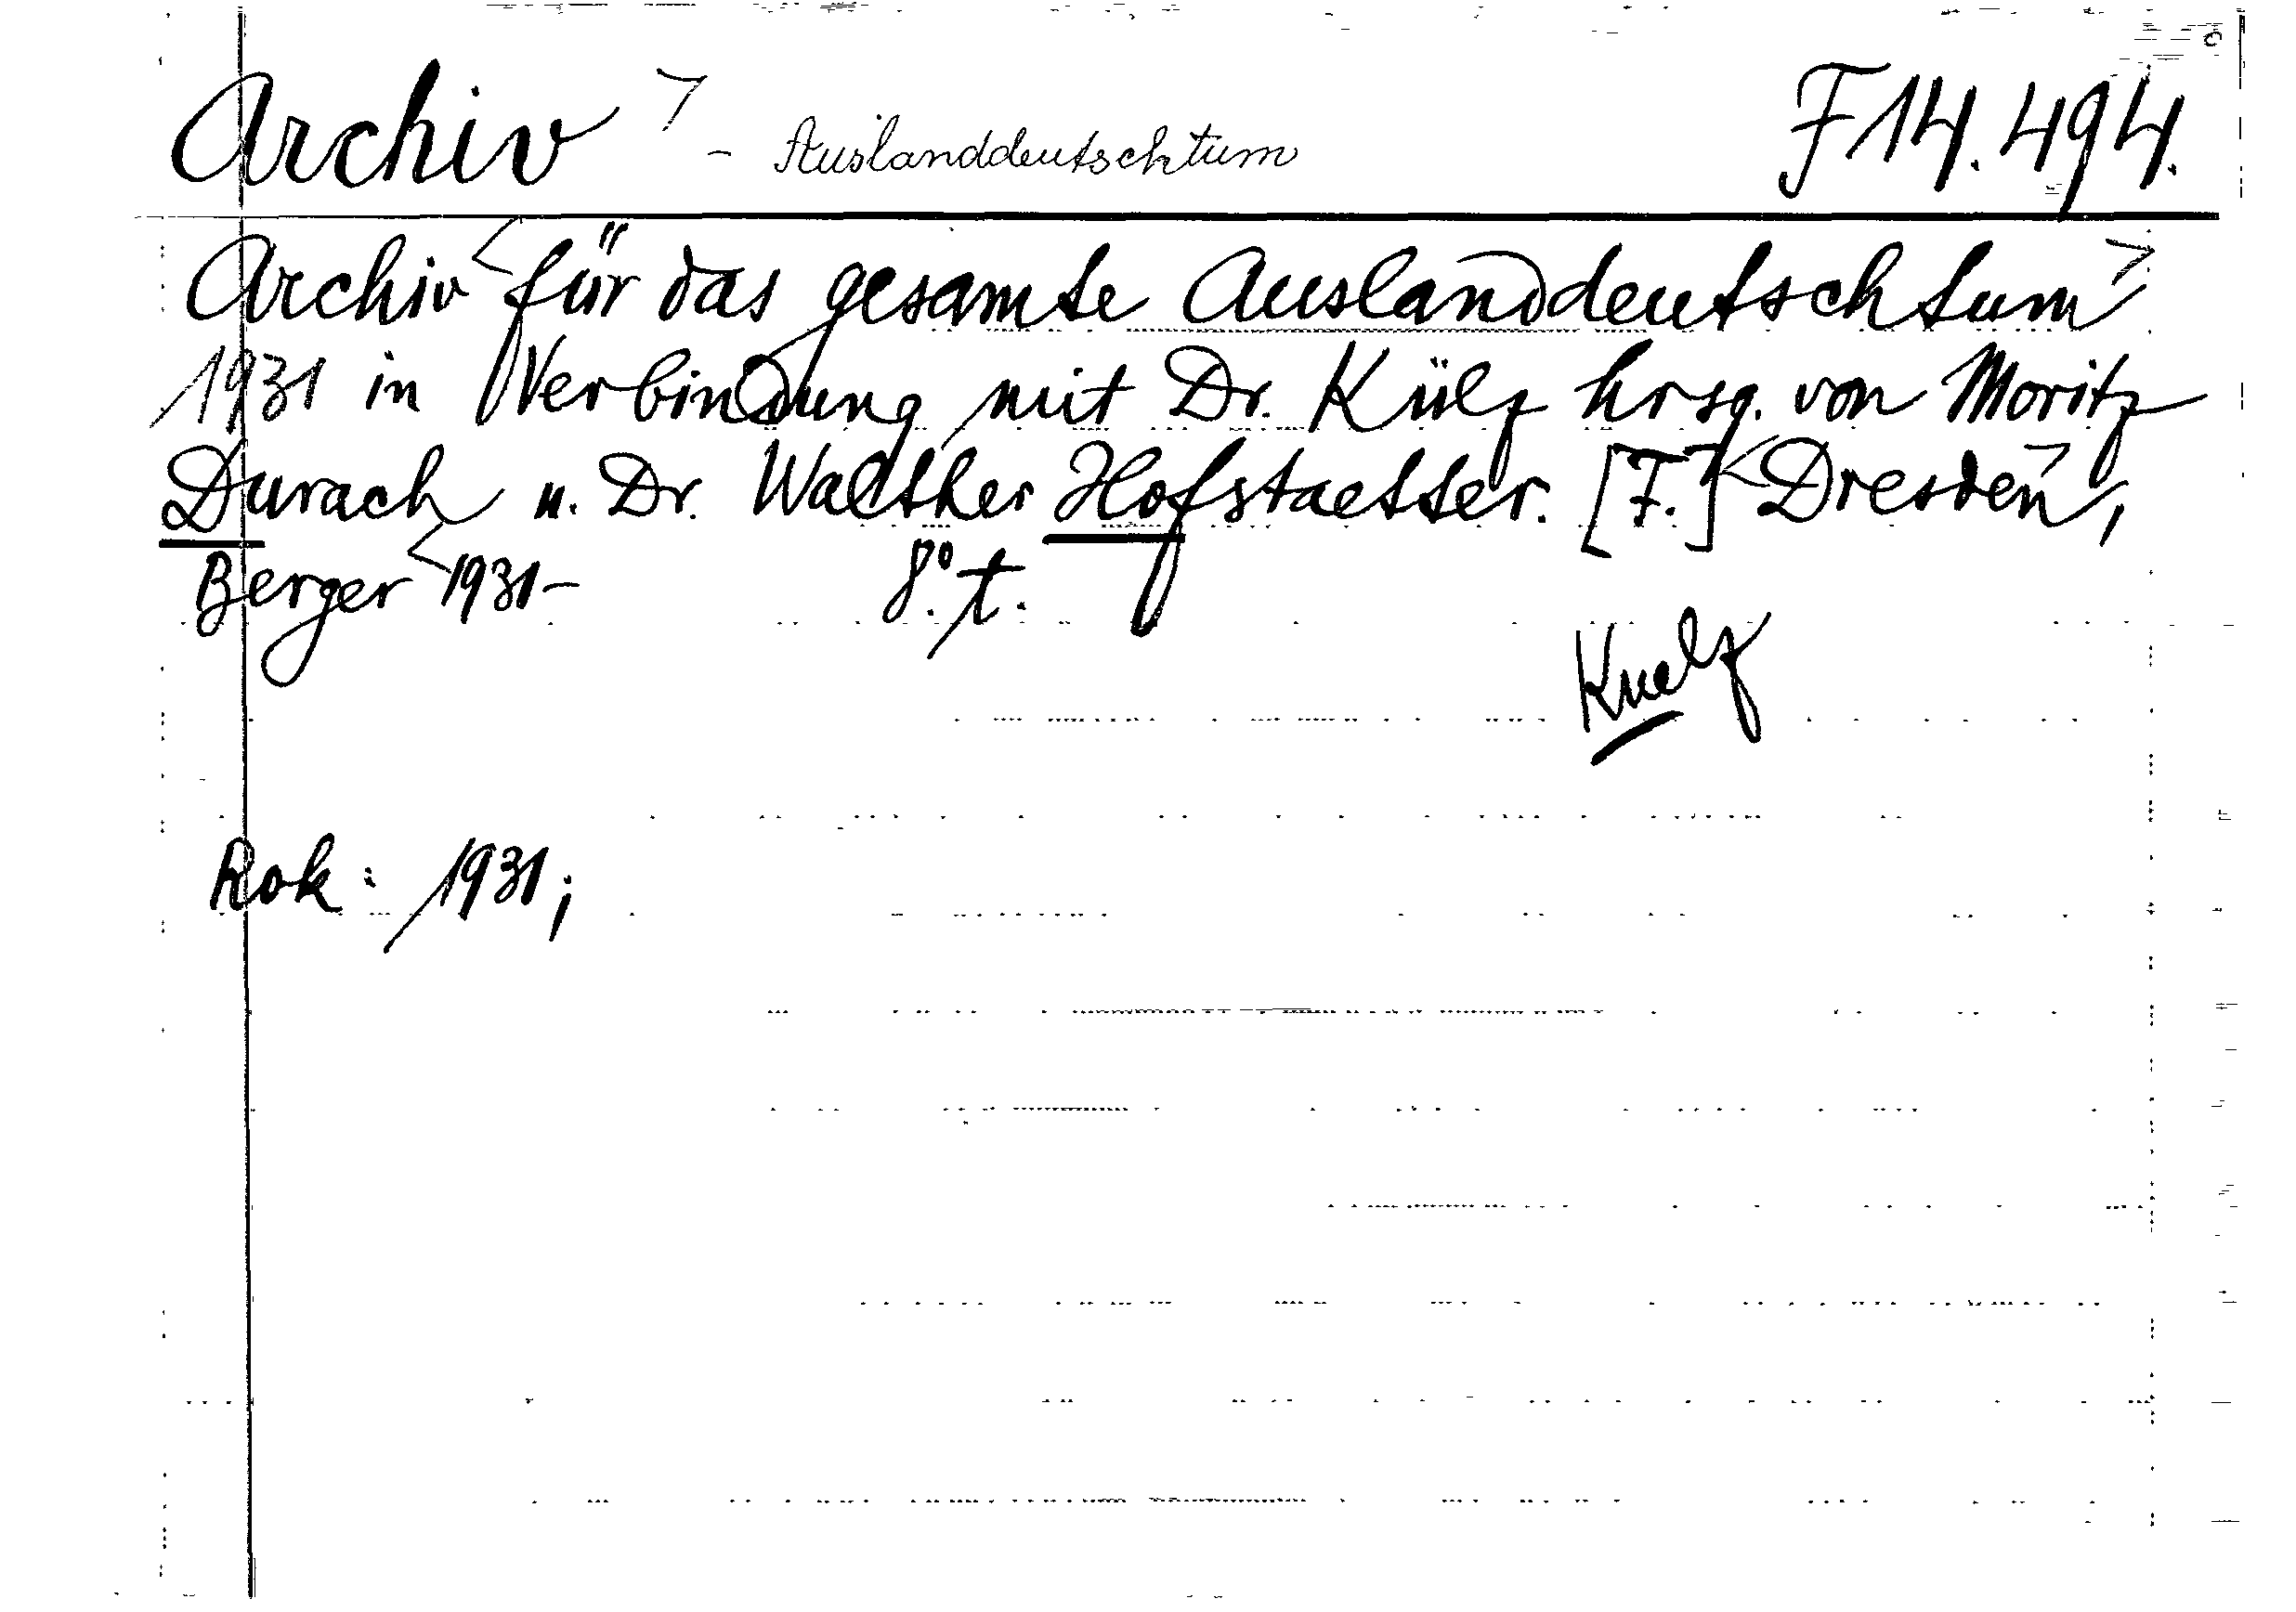 Archiv - Auslanddeutschtum F 14.494.
Archiv für das gesamte Auslanddeutschtum
1931 in Verbindung mit Dr. Külz hrsg. von Moritz
Durach u. Dr. Walther Hofstaetter. [F.] Dresden,
Berger 1931- 8°. t.
Kuelz
Rok: 1931;